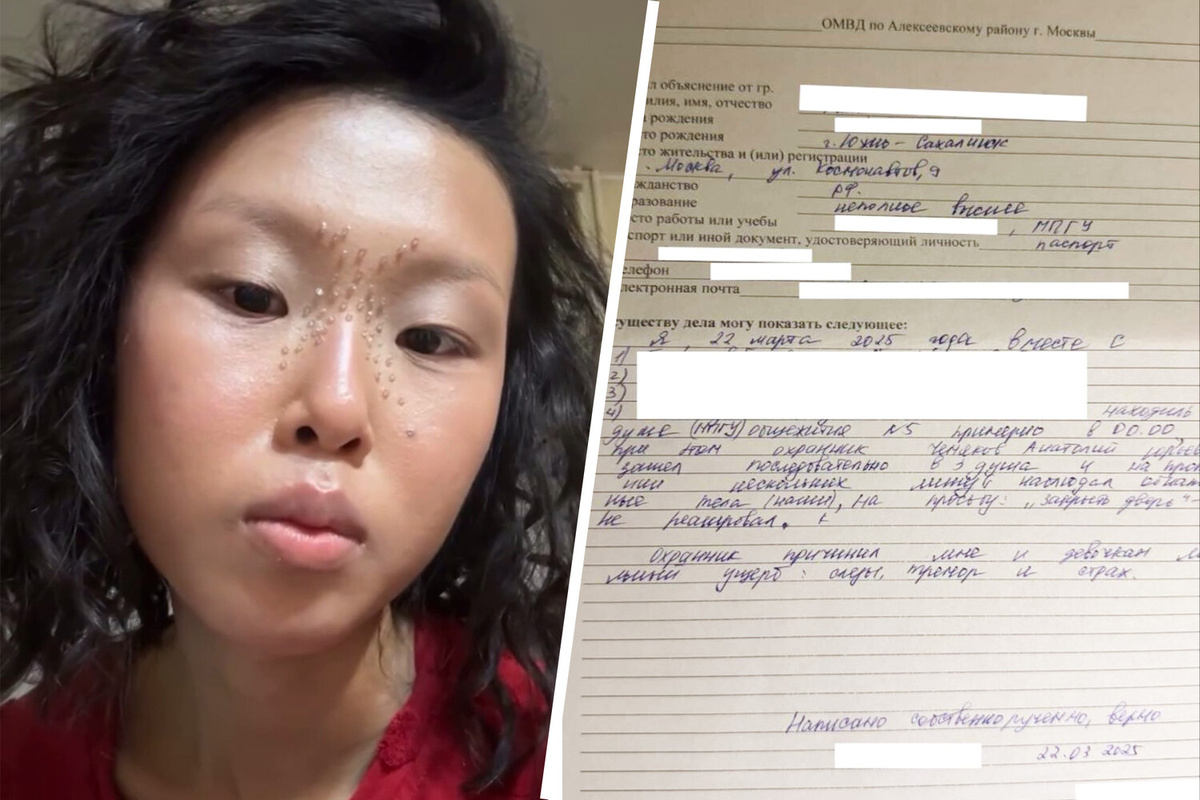 ОМВД по Алексеевскому району г. Москвы
л объяснение от гр.
илия, имя, отчество
а рождения
то рождения г. Южно-Сахалинск
то жительства и (или) регистрации
г. Москва, ул. Космонавтов, 9
жданство РФ.
разование неполное высшее
сто работы или учебы , МПГУ
спорт или иной документ, удостоверяющий личность паспорт
елефон
лектронная почта
существу дела могу показать следующее:
Я, 22 марта 2025 года вместе с
1)
2)
3)
4) находиль
душе (МПГУ) общежития №5 примерно в 00.00,
при этом охранник Анатолий
зашел последовательно в 3 душа и на про
нии нескольких минут наблюдал
ные тела (наши), на просьбу: „закрыть дверь"
не реагировал.
Охранник причинил мне и девочкам
льный ущерб: слезы, тремор и страх.
Написано собственноручно, верно
22.03 2025